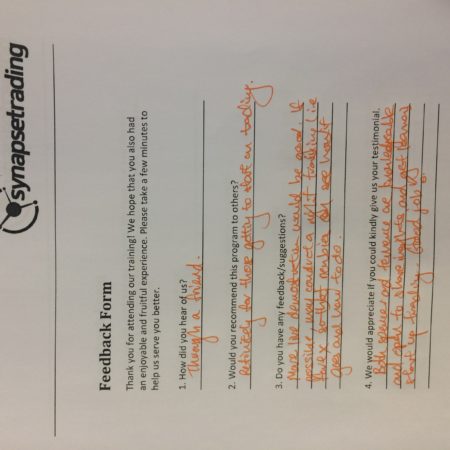 synapsetrading
Feedback Form
Thank you for attending our training! We hope that you also had
an enjoyable and fruitful experience. Please take a few minutes to
help us serve you better.
1. How did you hear of us?
Through a friend.
2. Would you recommend this program to others?
Definitely for those getting to start on trading.
3. Do you have any feedback/suggestions?
More live demonstration would be good. If
possible may conduct a unit training (ie
forex so that newbies can see what
goes and how to do.
4. We would appreciate if you could kindly give us your testimonial.
Both and are knowledgeable
and eager to share insights and get
start up trading. Good job guys